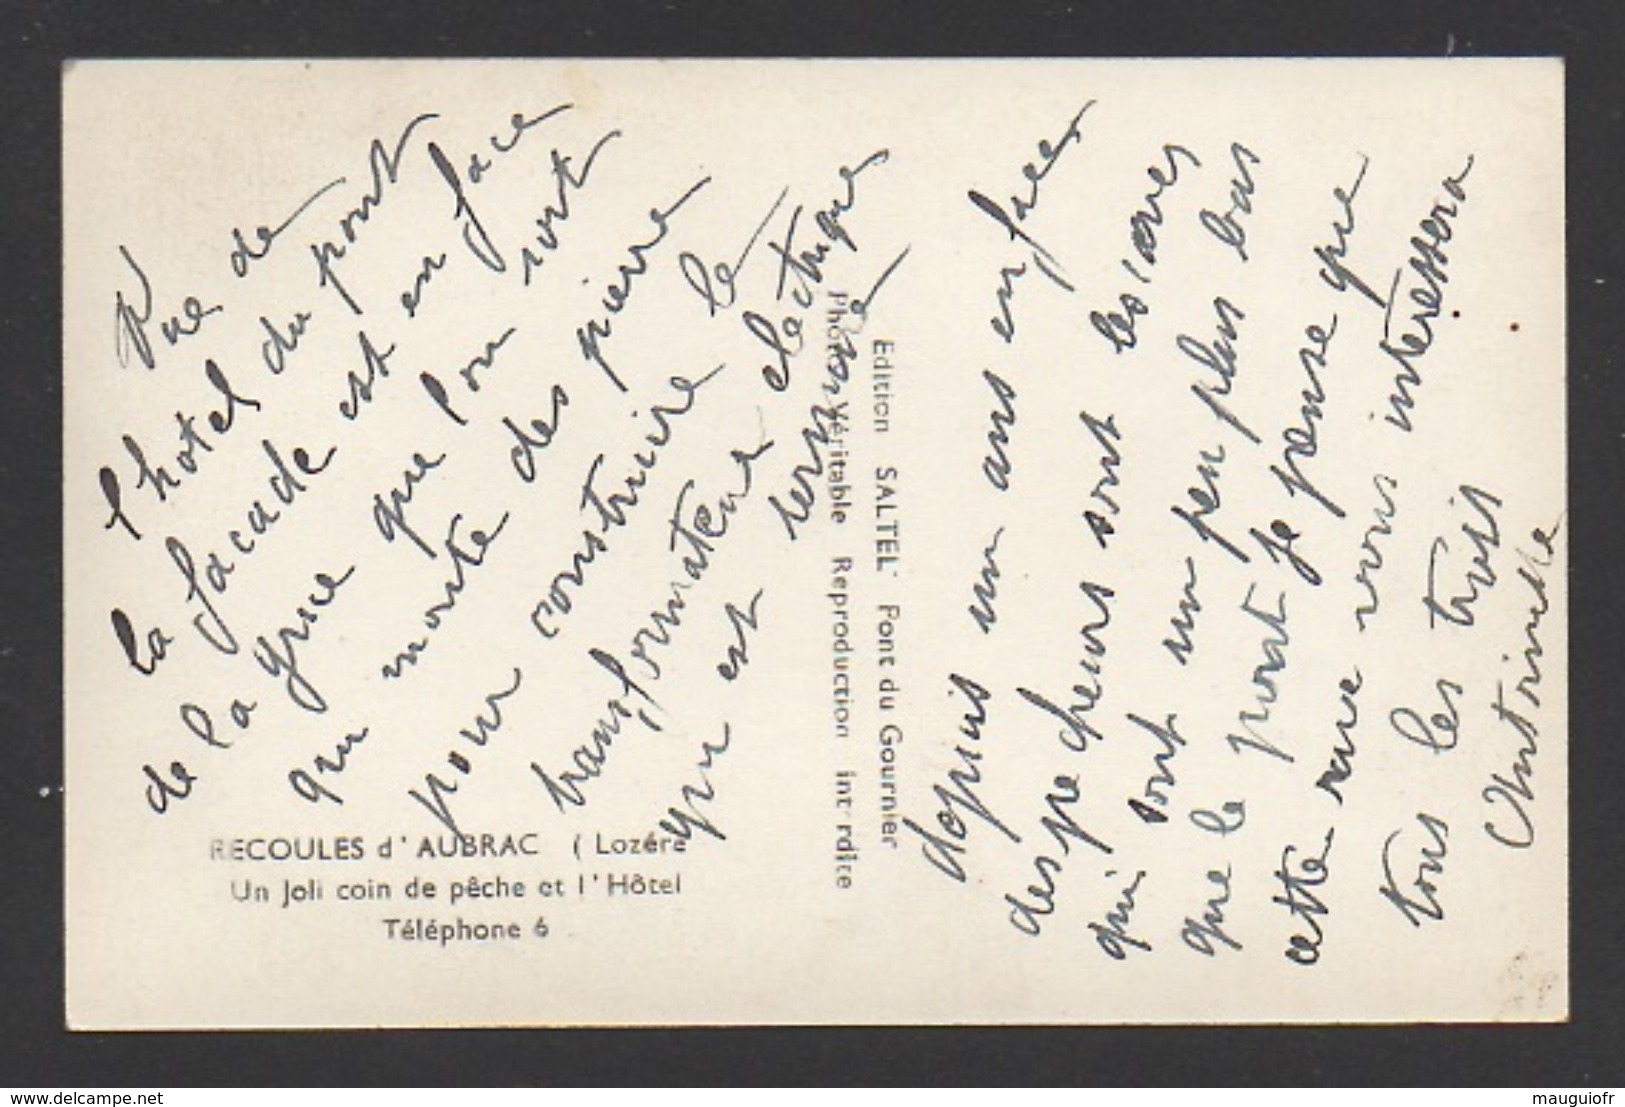 Vue de
l'hotel du pont
la facade est en face
de la grue que l'on voit
qui monte des pierre
pour construire le
transformateur electrique
qui est terminé
depuis un ans en face
des pecheurs sont les caves
qui sont un peu plus bas
que le pont je pense que
cette vue vous interessera
tous les trois
RECOULES d'AUBRAC (Lozére
Un Joli coin de pêche et l'Hôtel
Téléphone 6
Edition SALTEL Pont du Gournier
Photo Véritable Reproduction interdite
delcampe.net
mauguiofr